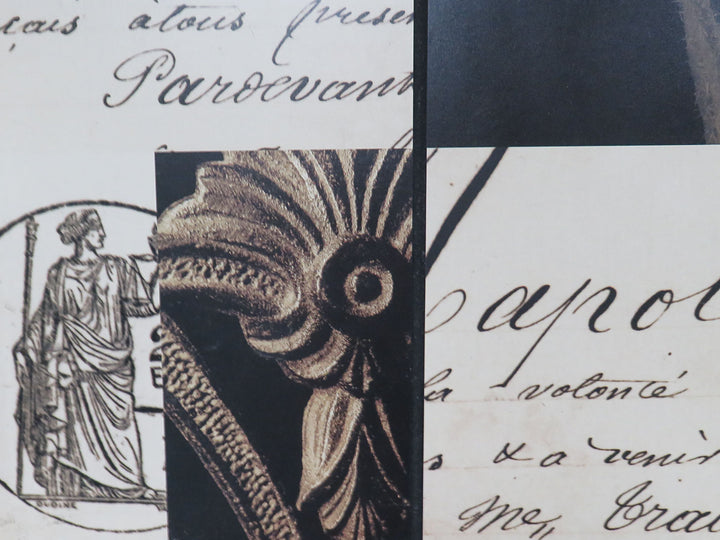 çais à tous présen
Pardevant
OUDINE
apol
la volonté
s & à venir
me,, Trai